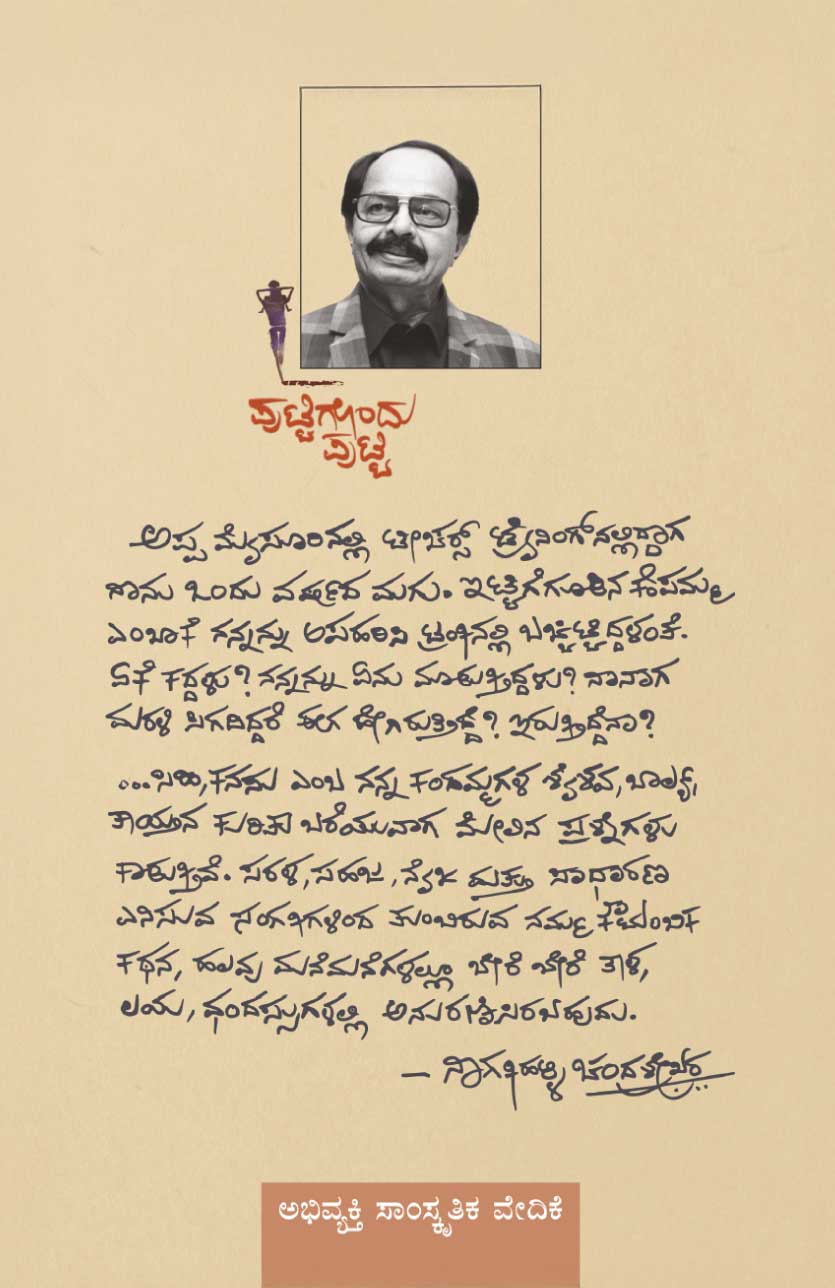 ಪುಟ್ಟಿಗೊಂದು
ಪುಟ್ಟಿ
ಅಪ್ಪ ಮೈಸೂರಿನಲ್ಲಿ ಟೀಚರ್ಸ್ ಟ್ರೈನಿಂಗ್‌ನಲ್ಲಿದ್ದಾಗ
ನಾನು ಒಂದು ವರ್ಷದ ಮಗು. ಇಟ್ಟಿಗೆಗೂಡಿನ ಕೆಂಪಮ್ಮ
ಎಂಬಾಕೆ ನನ್ನನ್ನು ಅಪಹರಿಸಿ ಟ್ರಂಕಿನಲ್ಲಿ ಬಚ್ಚಿಟ್ಟಿದ್ದಳಂತೆ.
ಏಕೆ ಕದ್ದಳು? ನನ್ನನ್ನು ಏನು ಮಾಡುತ್ತಿದ್ದಳು? ನಾನಾಗ
ಮರಳಿ ಸಿಗದಿದ್ದರೆ ಈಗ ಹೇಗಿರುತ್ತಿದ್ದೆ? ಇರುತ್ತಿದ್ದೆನಾ?
...ಸಿಹಿ, ಕನಸು ಎಂಬ ನನ್ನ ಕಂದಮ್ಮಗಳ ಶೈಶವ, ಬಾಲ್ಯ,
ತಾಯ್ತನ ಕುರಿತು ಬರೆಯುವಾಗ ಮೇಲಿನ ಪ್ರಶ್ನೆಗಳು
ಕಾಡುತ್ತಿವೆ. ಸರಳ, ಸಹಜ, ನೈಜ ಮತ್ತು ಸಾಧಾರಣ
ಎನಿಸುವ ಸಂಗತಿಗಳಿಂದ ತುಂಬಿರುವ ನಮ್ಮ ಕೌಟುಂಬಿಕ
ಕಥನ, ಹಲವು ಮನೆಮನೆಗಳಲ್ಲೂ ಬೇರೆ ಬೇರೆ ತಾಳ,
ಲಯ, ಛಂದಸ್ಸುಗಳಲ್ಲಿ ಅನುರಣಿಸಿರಬಹುದು.
– ನಾಗತಿಹಳ್ಳಿ ಚಂದ್ರಶೇಖರ
ಅಭಿವ್ಯಕ್ತಿ ಸಾಂಸ್ಕೃತಿಕ ವೇದಿಕೆ